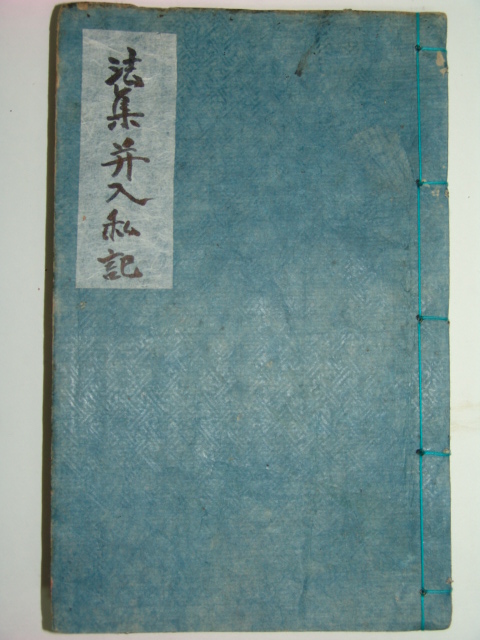 法集并入私記